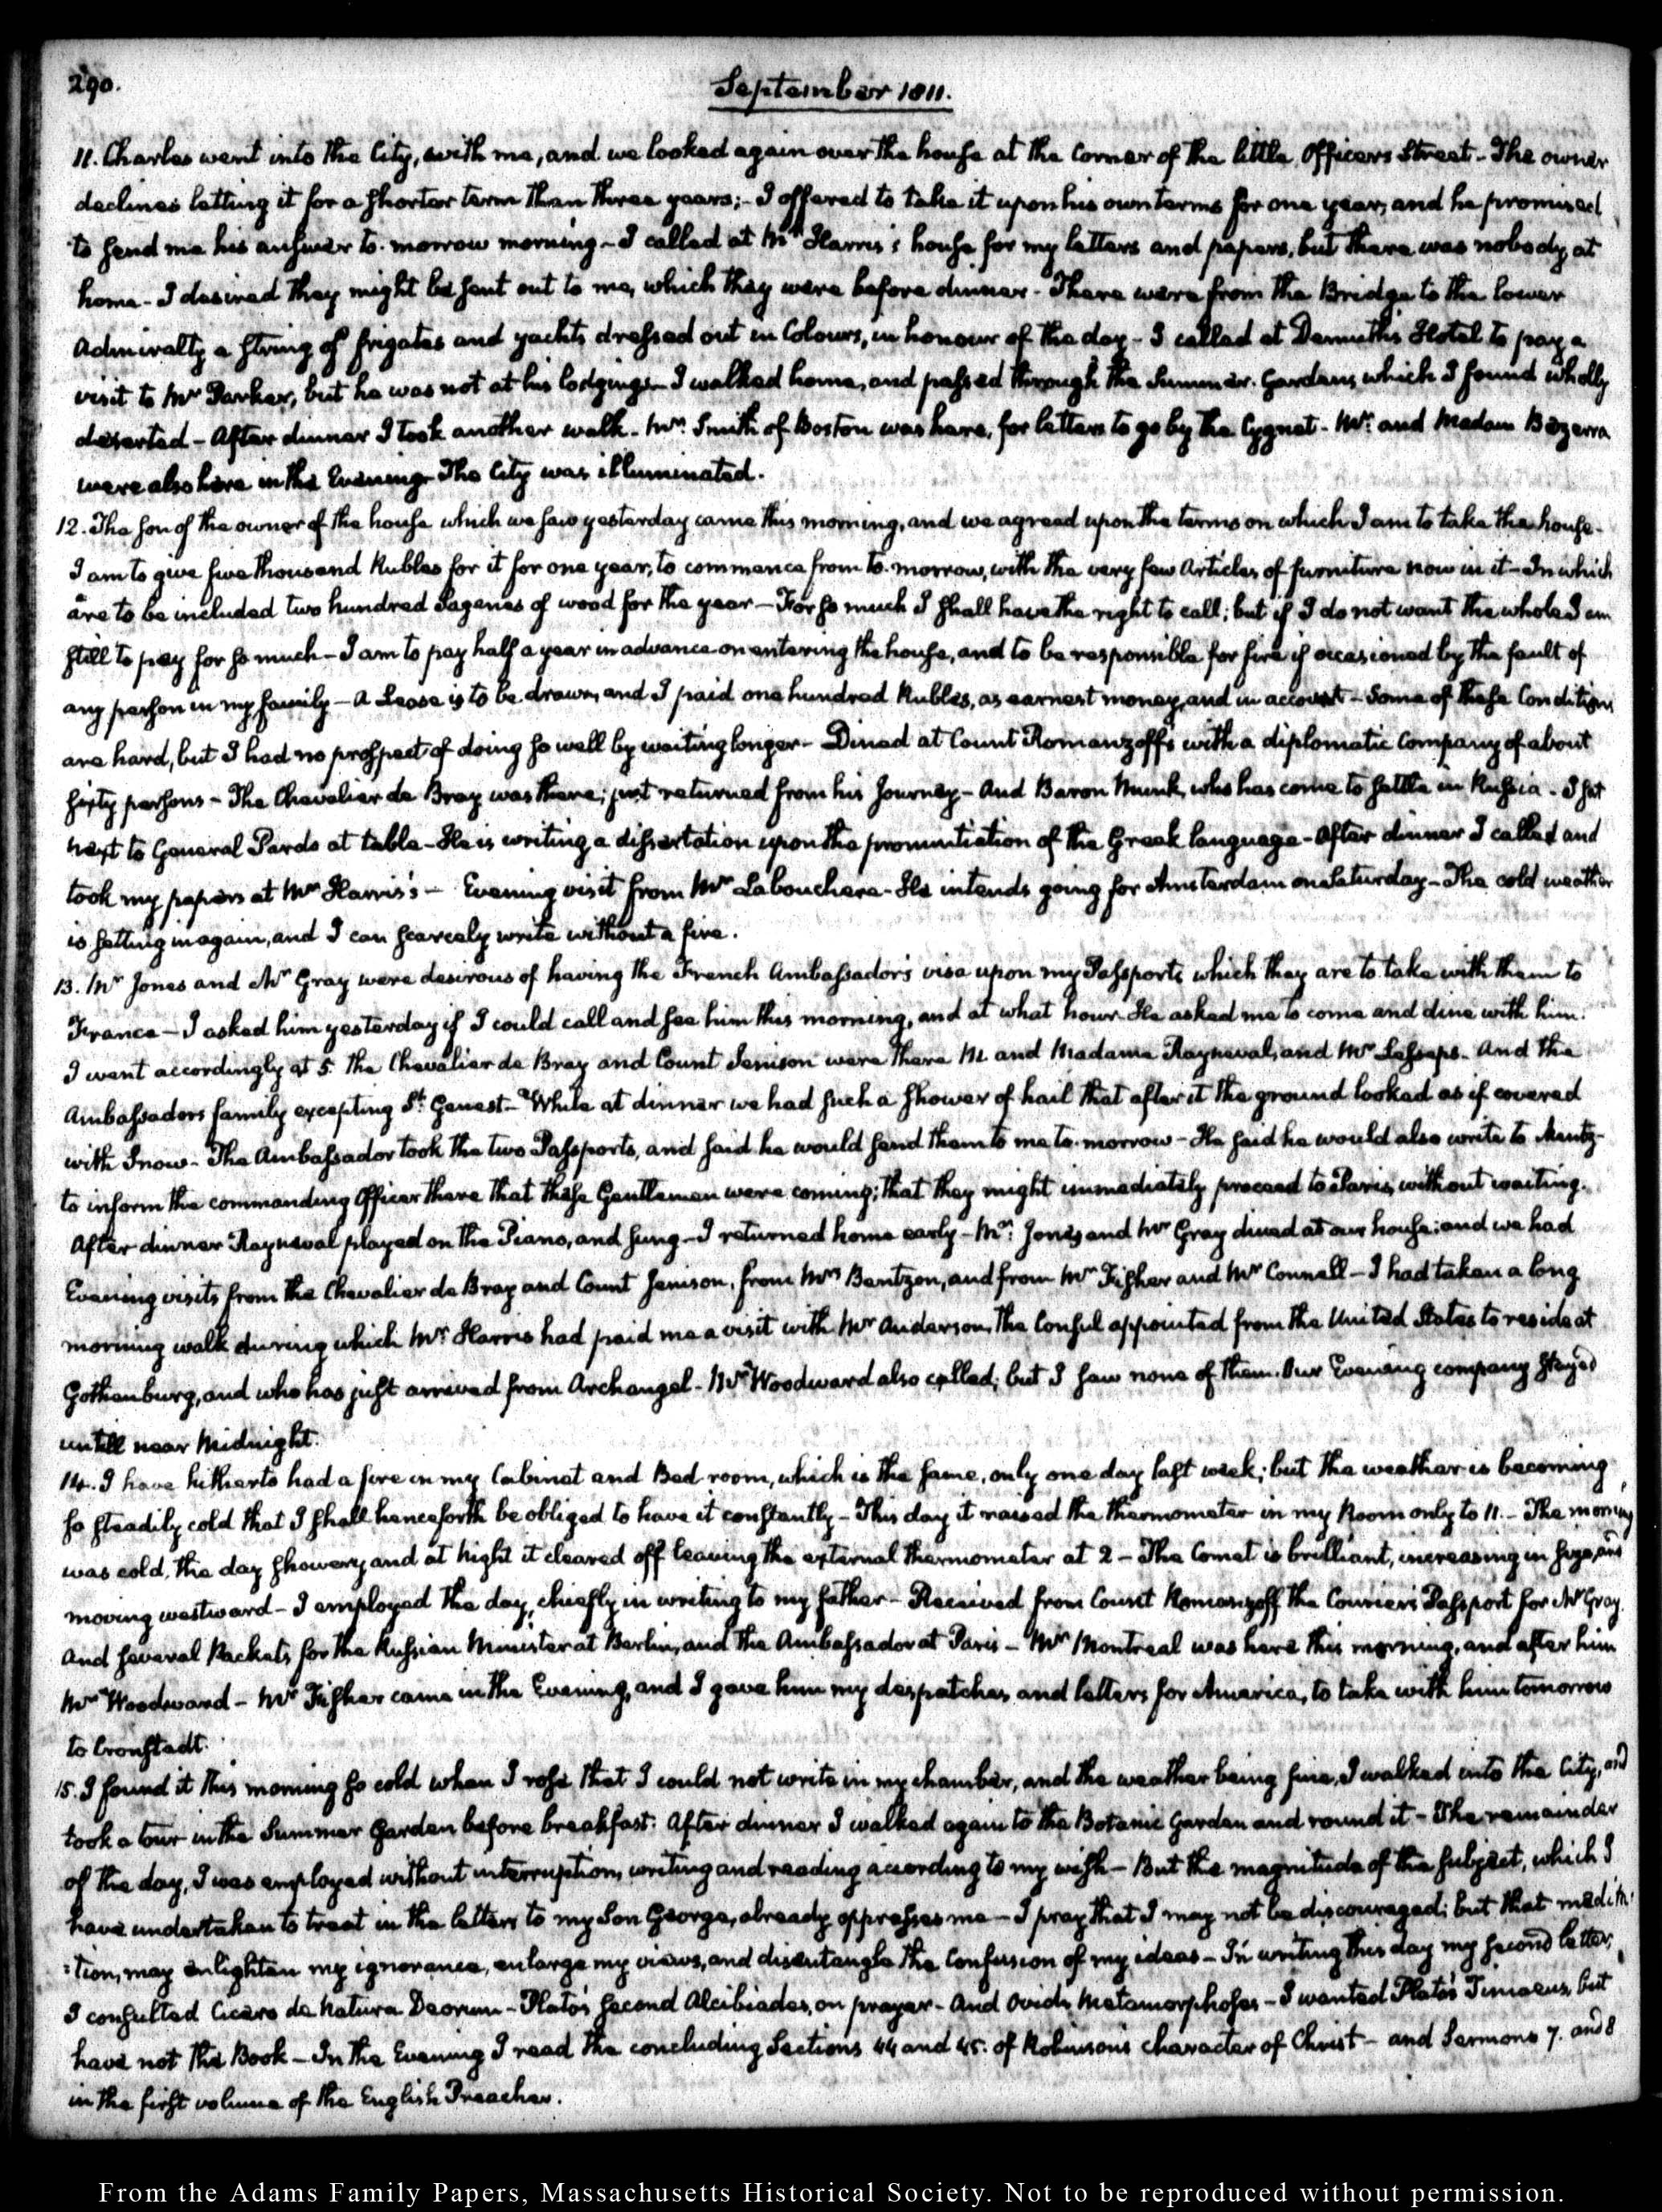 290.
September 1811.
11. Charles went into the City, with me, and we looked again over the house at the Corner of the little Officers Street - The owner
declines letting it for a shorter term than three years; - I offered to take it upon his own terms for one year, and he promised
to send me his answer to-morrow morning - I called at Mr Harris's house for my letters and papers, but there was nobody at
home - I desired they might be sent out to me, which they were before dinner - There were from the Bridge to the lower
Admiralty a string of frigates and yachts dressed out in Colours, in honour of the day - I called at Demuth's Hotel to pay a
visit to Mr Parker, but he was not at his lodgings - I walked home, and passed through the Summer-Gardens, which I found wholly
deserted - After dinner I took another walk - Mr Smith of Boston was here, for letters to go by the Cygnet - Mr and Madam Bezerra
were also here in the Evening - The City was illuminated.
12. The son of the owner of the house which we saw yesterday came this morning, and we agreed upon the terms on which I am to take the house -
I am to give five thousand Rubles for it for one year, to commence from to-morrow, with the very few Articles of furniture now in it - In which
are to be included two hundred Sagenes of wood for the year - For so much I shall have the right to call; but if I do not want the whole I am
still to pay for so much - I am to pay half a year in advance on entering the house, and to be responsible for fire if occasioned by the fault of
any person in my family - A Lease is to be drawn, and I paid one hundred Rubles, as earnest money, and in account - Some of these Conditions
are hard, but I had no prospect of doing so well by waiting longer - Dined at Count Romanzoff's with a diplomatic Company of about
sixty persons - The Chevalier de Bray was there; just returned from his Journey - And Baron Munk, who has come to settle in Russia - I sat
next to General Pardo at table - He is writing a dissertation upon the pronuntiation of the Greek language - After dinner I called and
took my papers at Mr Harris's - Evening visit from Mr Labouchere - He intends going for Amsterdam on Saturday - The cold weather
is setting in again, and I can scarcely write without a fire.
13. Mr Jones and Mr Gray were desirous of having the French Ambassador's visa upon my Passports which they are to take with them to
France - I asked him yesterday if I could call and see him this morning, and at what hour - He asked me to come and dine with him.
I went accordingly at 5. The Chevalier de Bray and Count Jenison were there Mr and Madame Rayneval, and Mr Lesseps. And the
Ambassadors family excepting St. Genest - While at dinner we had such a shower of hail that after it the ground looked as if covered
with Snow - The Ambassador took the two Passports, and said he would send them to me to-morrow - He said he would also write to Mentz -
to inform the commanding Officer there that these Gentlemen were coming; that they might immediately proceed to Paris, without waiting.
After dinner Rayneval played on the Piano, and sung - I returned home early - Mr Jones and Mr Gray dined at our house; and we had
Evening visits from the Chevalier de Bray and Count Jenison, from Mrs Bentzon, and from Mr Fisher and Mr Connell - I had taken a long
morning walk during which Mr Harris had paid me a visit with Mr Anderson, the Consul appointed from the United States to reside at
Gothenburg, and who has just arrived from Archangel - Mr Woodward also called; but I saw none of them. Our Evening company stayed
untill near Midnight.
14. I have hitherto had a fire in my Cabinet and Bed-room, which is the same, only one day last week; but the weather is becoming
so steadily cold that I shall henceforth be obliged to have it constantly - This day it raised the thermometer in my Room only to 11. - The morning
was cold, the day showery, and at Night it cleared off leaving the external thermometer at 2 - The Comet is brilliant, increasing in size, and
moving westward - I employed the day, chiefly in writing to my father - Received from Count Romanzoff the Courier's Passport for Mr Gray.
And several Packets for the Russian Minister at Berlin, and the Ambassador at Paris - Mr Montreal was here this morning, and after him
Mr Woodward - Mr Fisher came in the Evening, and I gave him my despatches and letters for America, to take with him tomorrow
to Cronstadt.
15. I found it this morning so cold when I rose, that I could not write in my chamber, and the weather being fine, I walked into the City, and
took a tour in the Summer Garden before breakfast: After dinner I walked again to the Botanic Garden and round it - The remainder
of the day, I was employed without interruption, writing and reading according to my wish - But the magnitude of the subject, which I
have undertaken to treat in the letters to my Son George, already oppresses me - I pray that I may not be discouraged; but that medita
:tion, may enlighten my ignorance, enlarge my views, and disentangle the Confusion of my ideas - In writing this day my second letter,
I consulted Cicero de Natura Deorum - Plato's second Alcibiades, on prayer - And Ovid's Metamorphoses - I wanted Plato's Timaeus, but
have not the Book - In the Evening I read the concluding Sections 44 and 45. of Robinson's character of Christ - and Sermons 7. and 8
in the first volume of the English Preacher.
From the Adams Family Papers, Massachusetts Historical Society. Not to be reproduced without permission.